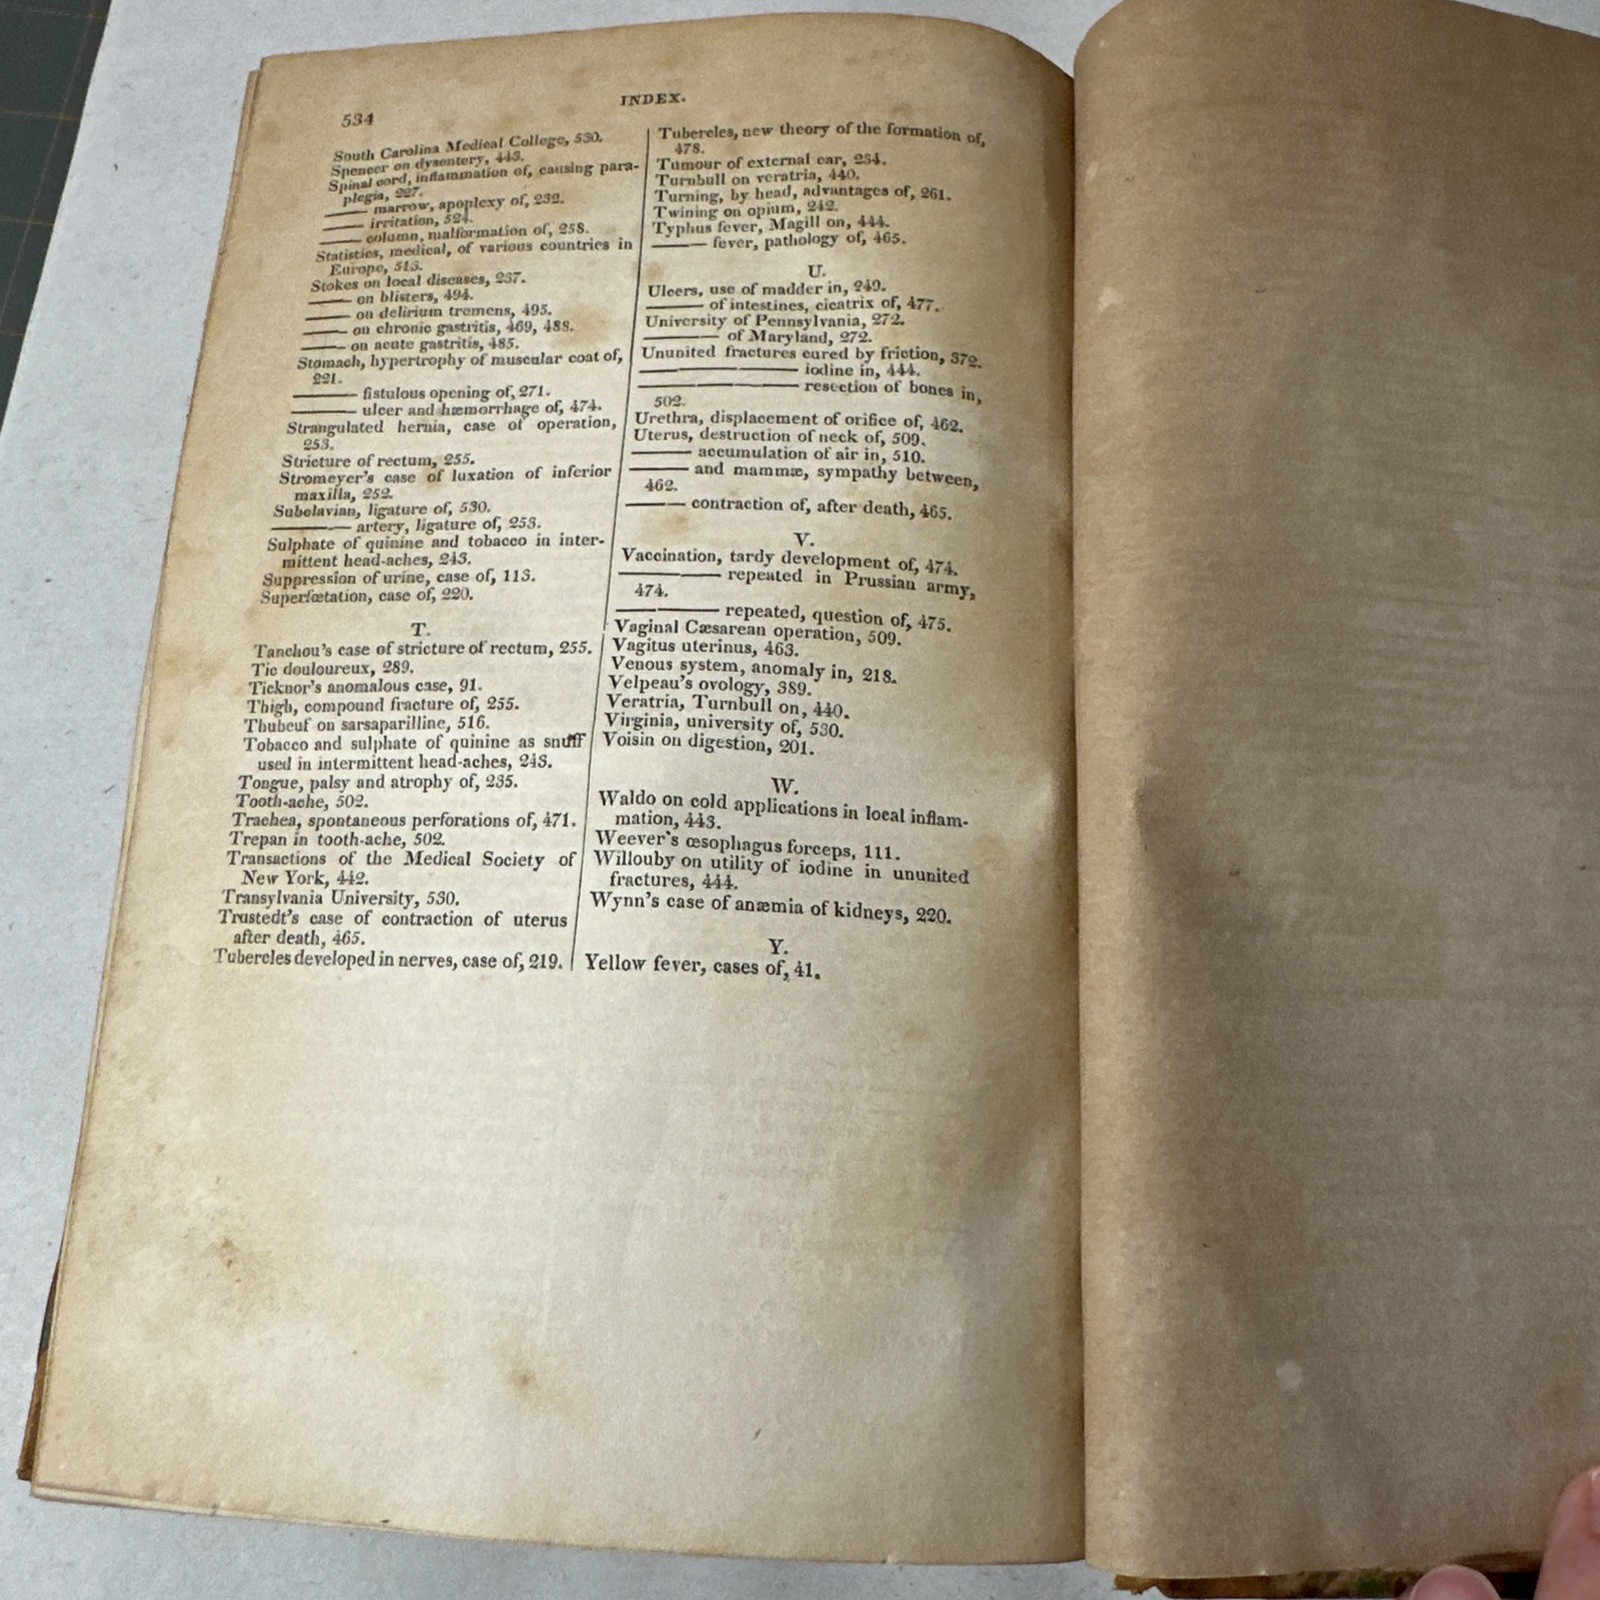 534
INDEX.
South Carolina Medical College, 530.
Spencer on dysentery, 443.
Spinal cord, inflammation of, causing para-
plegia, 227.
—— marrow, apoplexy of, 232.
—— irritation, 524.
—— column, malformation of, 258.
Statistics, medical, of various countries in
Europe, 513.
Stokes on local diseases, 237.
—— on blisters, 494.
—— on delirium tremens, 495.
—— on chronic gastritis, 469, 488.
—— on acute gastritis, 485.
Stomach, hypertrophy of muscular coat of,
221.
—— fistulous opening of, 271.
—— ulcer and hæmorrhage of, 474.
Strangulated hernia, case of operation,
253.
Stricture of rectum, 255.
Stromeyer's case of luxation of inferior
maxilla, 252.
Subclavian, ligature of, 530.
—— artery, ligature of, 253.
Sulphate of quinine and tobacco in inter-
mittent head-aches, 243.
Suppression of urine, case of, 113.
Superfœtation, case of, 220.
T.
Tanchou's case of stricture of rectum, 255.
Tic douloureux, 289.
Ticknor's anomalous case, 91.
Thigh, compound fracture of, 255.
Thubeuf on sarsaparilline, 516.
Tobacco and sulphate of quinine as snuff
used in intermittent head-aches, 243.
Tongue, palsy and atrophy of, 235.
Tooth-ache, 502.
Trachea, spontaneous perforations of, 471.
Trepan in tooth-ache, 502.
Transactions of the Medical Society of
New York, 442.
Transylvania University, 530.
Trustedt's case of contraction of uterus
after death, 465.
Tubercles developed in nerves, case of, 219.
Tubercles, new theory of the formation of,
478.
Tumour of external ear, 234.
Turnbull on veratria, 440.
Turning, by head, advantages of, 261.
Twining on opium, 242.
Typhus fever, Magill on, 444.
—— fever, pathology of, 465.
U.
Ulcers, use of madder in, 249.
—— of intestines, cicatrix of, 477.
University of Pennsylvania, 272.
—— of Maryland, 272.
Ununited fractures cured by friction, 372.
—— iodine in, 444.
—— resection of bones in,
502.
Urethra, displacement of orifice of, 462.
Uterus, destruction of neck of, 509.
—— accumulation of air in, 510.
—— and mammæ, sympathy between,
462.
—— contraction of, after death, 465.
V.
Vaccination, tardy development of, 474.
—— repeated in Prussian army,
474.
—— repeated, question of, 475.
Vaginal Cæsarean operation, 509.
Vagitus uterinus, 463.
Venous system, anomaly in, 218.
Velpeau's ovology, 389.
Veratria, Turnbull on, 440.
Virginia, university of, 530.
Voisin on digestion, 201.
W.
Waldo on cold applications in local inflam-
mation, 443.
Weever's œsophagus forceps, 111.
Willouby on utility of iodine in ununited
fractures, 444.
Wynn's case of anæmia of kidneys, 220.
Y.
Yellow fever, cases of, 41.